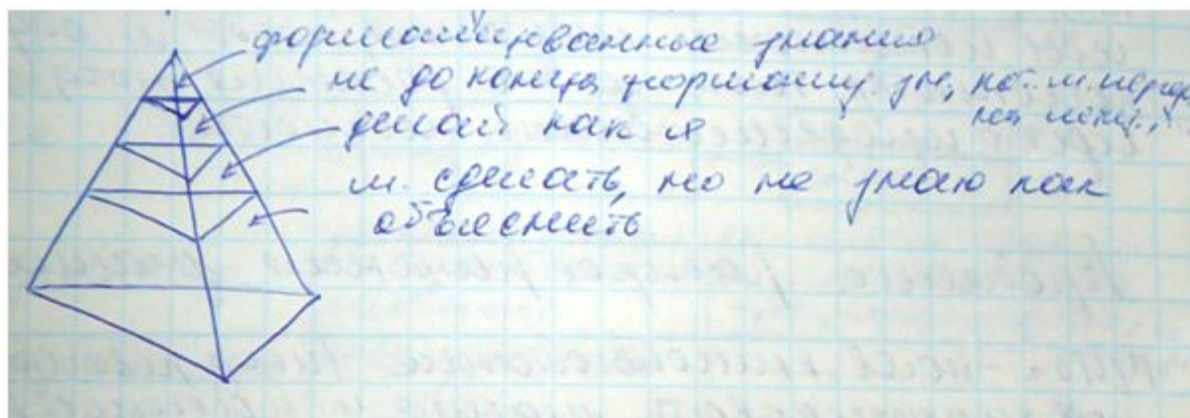 форматизированные знания
не до конца формализ. зн., кот. м. передать
делай как я
м. сделать, но не знаю как
объяснить